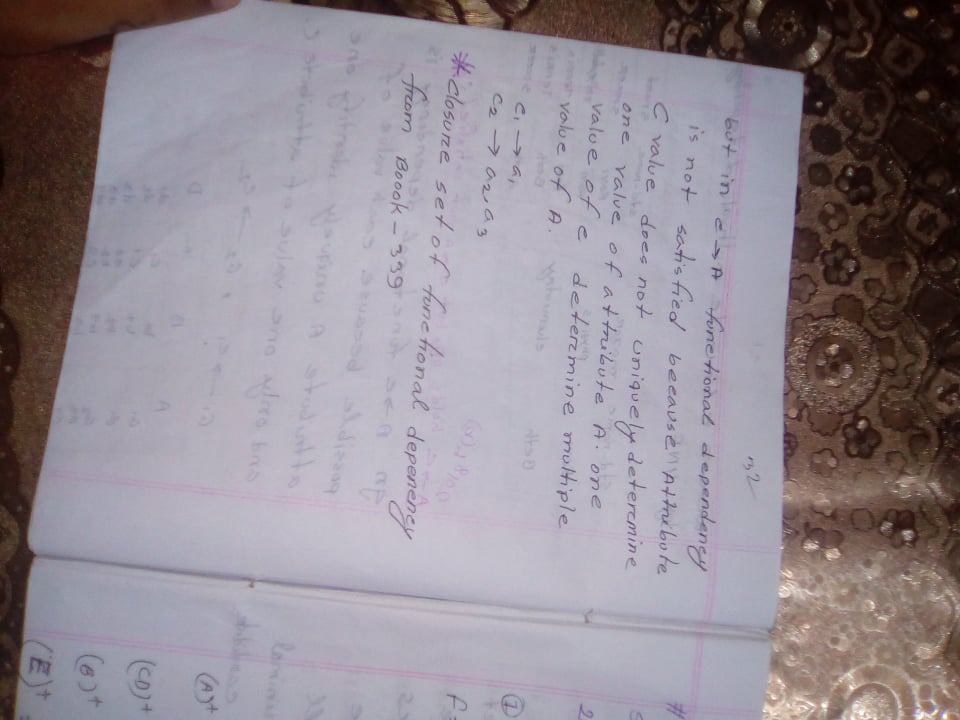 32
but in c → A functional dependency
is not satisfied because Attribute
C value does not uniquely determine
one value of attribute A. one
value of c determine multiple
value of A.
c₁ → a₁
c₂ → a₂, a₃
* closure set of functional depenency
from Boook - 339
#
2
①
(A)⁺
(CD)⁺
(B)⁺
(E)⁺